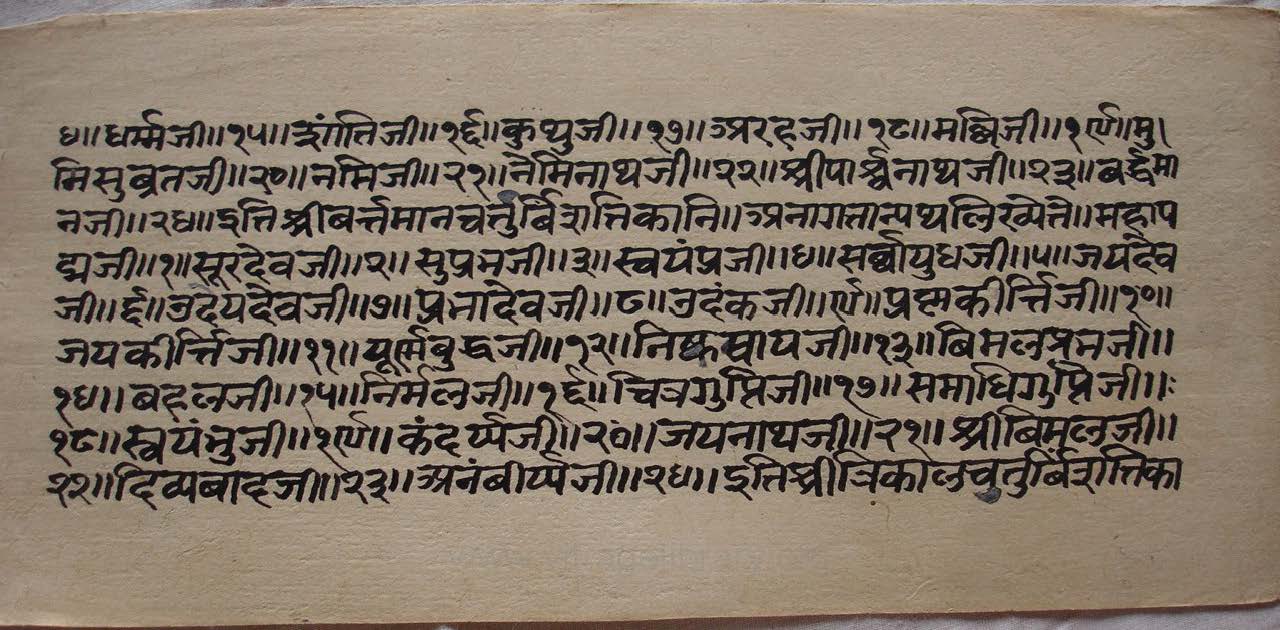 ४॥धर्म्मजी॥१५॥शांतिजी॥१६॥कुंथुजी॥१७॥अरहजी॥१८॥मल्लिजी॥१९॥मु
निसुब्रतजी॥२०॥नमिजी॥२१॥नेमिनाथजी॥२२॥श्रीपार्श्वनाथजी॥२३॥बर्द्धमा
नजी॥२४॥इतिश्रीबर्त्तमानचर्तुर्बिंशतिकानि॥अनागतान्पथलिख्येते॥महाप
द्मजी॥१॥सूरदेवजी॥२॥सुप्रभजी॥३॥स्वयंप्रजी॥४॥सर्व्वायुधजी॥५॥जयदेव
जी॥६॥उदयदेवजी॥७॥प्रभादेवजी॥८॥उदंकजी॥९॥प्रह्मकीर्त्तिजी॥१०॥
जयकीर्त्तिजी॥११॥पूर्मबुद्धजी॥१२॥निष्कषायजी॥१३॥बिमलप्रभजी॥
१४॥बहलजी॥१५॥निर्मलजी॥१६॥चित्रगुप्तिजी॥१७॥समाधिगुप्तिजी॥
१८॥स्वयंभुजी॥१९॥कंदर्प्पजी॥२०॥जयनाथजी॥२१॥श्रीबिमलजी॥
२२॥दिव्यबादजी॥२३॥अनंबीर्य्यजी॥२४॥इतिश्रीत्रिकालचतुर्बिंशतिका